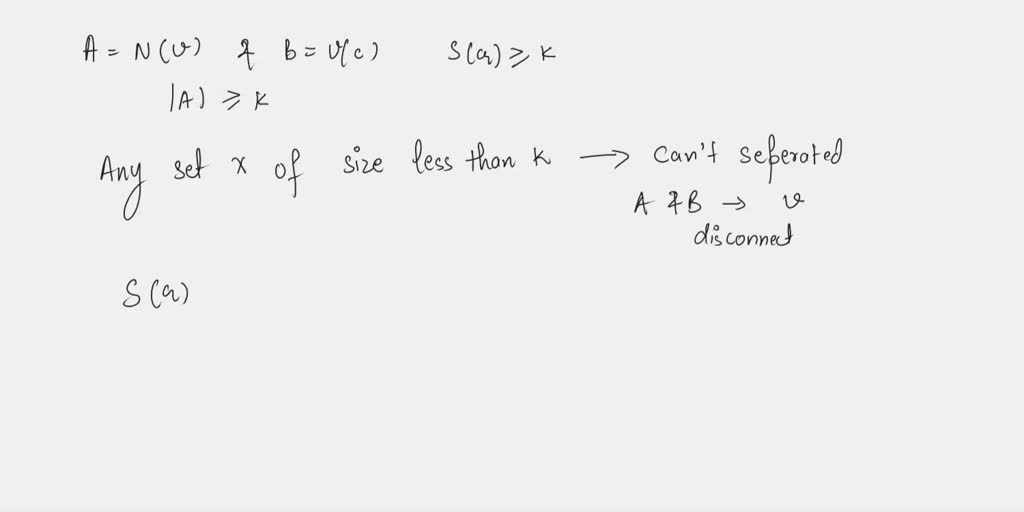 A = N(v) & B = V(C) S(G) ⩾ K
|A| ⩾ K
Any set x of size less than K → can't seperated
A & B → v
disconnect
S(G)